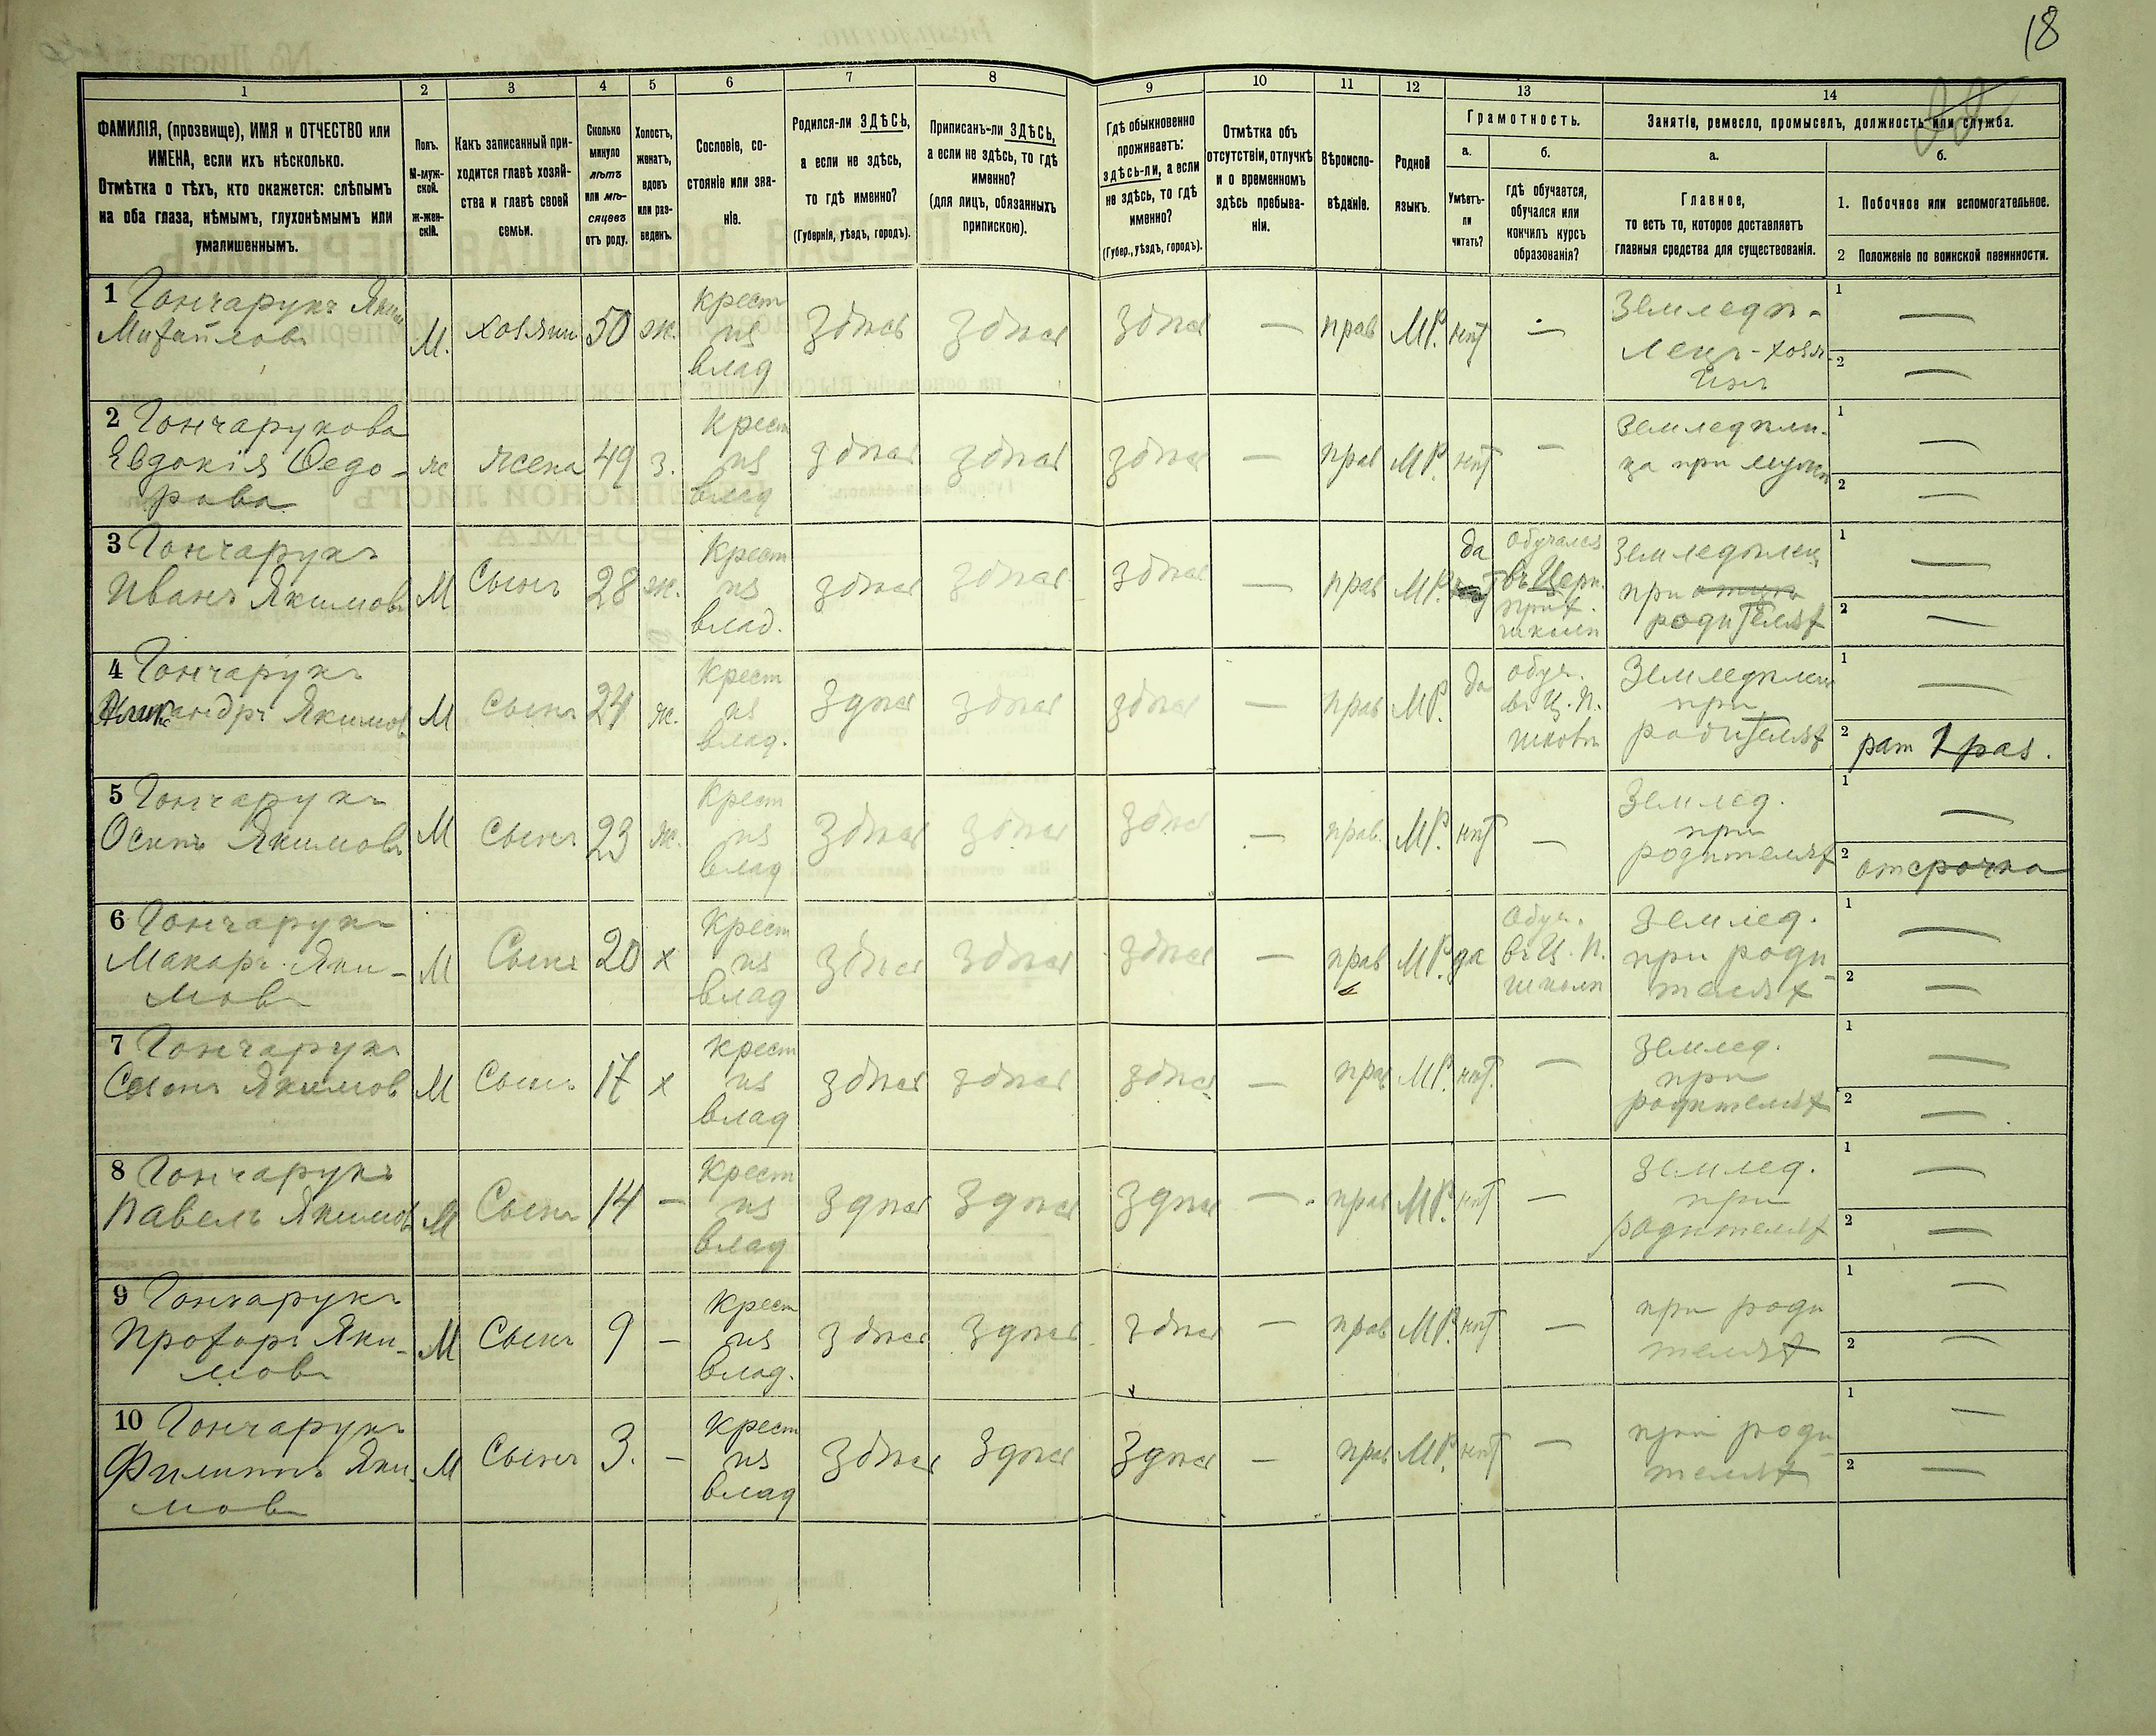 18
1 2 3 4 5 6 7 8 9 10 11 12 13 14
ФАМИЛІЯ, (прозвище), ИМЯ и ОТЧЕСТВО или
ИМЕНА, если ихъ нѣсколько.
Отмѣтка о тѣхъ, кто окажется: слѣпымъ
на оба глаза, нѣмымъ, глухонѣмымъ или
умалишеннымъ.
Полъ.
М-муж-
ской.
ж-жен-
скій.
Какъ записанный при-
ходится главѣ хозяй-
ства и главѣ своей
семьи.
Сколько
минуло
лѣтъ
или мѣ-
сяцевъ
отъ роду.
Холостъ,
женатъ,
вдовъ
или раз-
веденъ.
Сословіе, со-
стояніе или зва-
ніе.
Родился-ли ЗДѢСЬ,
а если не здѣсь,
то гдѣ именно?
(Губернія, уѣздъ, городъ).
Приписанъ-ли ЗДѢСЬ,
а если не здѣсь, то гдѣ
именно?
(для лицъ, обязанныхъ
припискою).
Гдѣ обыкновенно
проживаетъ:
здѣсь-ли, а если
не здѣсь, то гдѣ
именно?
(Губер., уѣздъ, городъ).
Отмѣтка объ
отсутствіи, отлучкѣ
и о временномъ
здѣсь пребыва-
ніи.
Вѣроиспо-
вѣданіе.
Родной
языкъ.
Грамотность.
а.
Умѣетъ-
ли
читать?
б.
гдѣ обучается,
обучался или
кончилъ курсъ
образованія?
Занятіе, ремесло, промыселъ, должность или служба.
а.
Главное,
то есть то, которое доставляетъ
главныя средства для существованія.
б.
1. Побочное или вспомогательное.
2 Положеніе по воинской повинности.
1 Гончарукъ Яким
Михайловъ
М. хозяинъ 50 ж.
крест
из
влад
здѣсь здѣсь здѣсь — прав МР. нѣт —
Земледѣ-
лецъ-хозя-
инъ
1 —
2 —
2 Гончарукова
Евдокія Ѳедо-
рова
ж жена 49 з.
Крест
из
влад
здѣсь здѣсь здѣсь — прав МР. нѣт —
земледѣли-
ца при мужѣ
1 —
2 —
3 Гончарукъ
Иванъ Якимовъ
М Сынъ 28 ж.
Крест
из
влад.
здѣсь здѣсь здѣсь — прав МР.
да
обучался
въ Церк.
прих.
школѣ
земледѣлец
при
родителях
1 —
2 —
4 Гончарукъ
Якимов
М Сынъ 24 ж.
Крест
из
влад.
здѣсь здѣсь здѣсь — прав МР. да
обуч.
въ Ц. П.
школѣ
Земледѣлец
при
родителях
1 —
2 рат 1 раз.
5 Гончарукъ
Осипъ Якимовъ
М сынъ 23 ж.
Крест
из
влад
здѣсь здѣсь здѣсь — прав. МР. нѣт —
Землед.
при
родителях
1 —
2 отсрочка
6 Гончарукъ
Макаръ Яки-
мовъ
М Сынъ 20 х
Крест
из
влад
здѣсь здѣсь здѣсь — прав МР. да
Обуч.
въ Ц. П.
школѣ
землед.
при роди-
телях
1 —
2 —
7 Гончарукъ
Якимов
М Сынъ 17 х
крест
из
влад
здѣсь здѣсь здѣсь — прав МР. нѣт. —
землед.
при
родителях
1 —
2 —
8 Гончарукъ
Павелъ Якимов
М Сынъ 14 —
Крест
из
влад
здѣсь здѣсь здѣсь — прав МР. нѣт —
землед.
при
родителях
1 —
2 —
9 Гончарукъ
Прохоръ Яки-
мовъ
М Сынъ 9 —
Крест
из
влад.
здѣсь здѣсь здѣсь — прав МР. нѣт —
при роди
телях
1 —
2 —
10 Гончарукъ
Филиппъ Яки-
мовъ
М Сынъ 3. —
Крест
из
влад
здѣсь здѣсь здѣсь — прав МР. нѣт —
при роди
телях
1 —
2 —